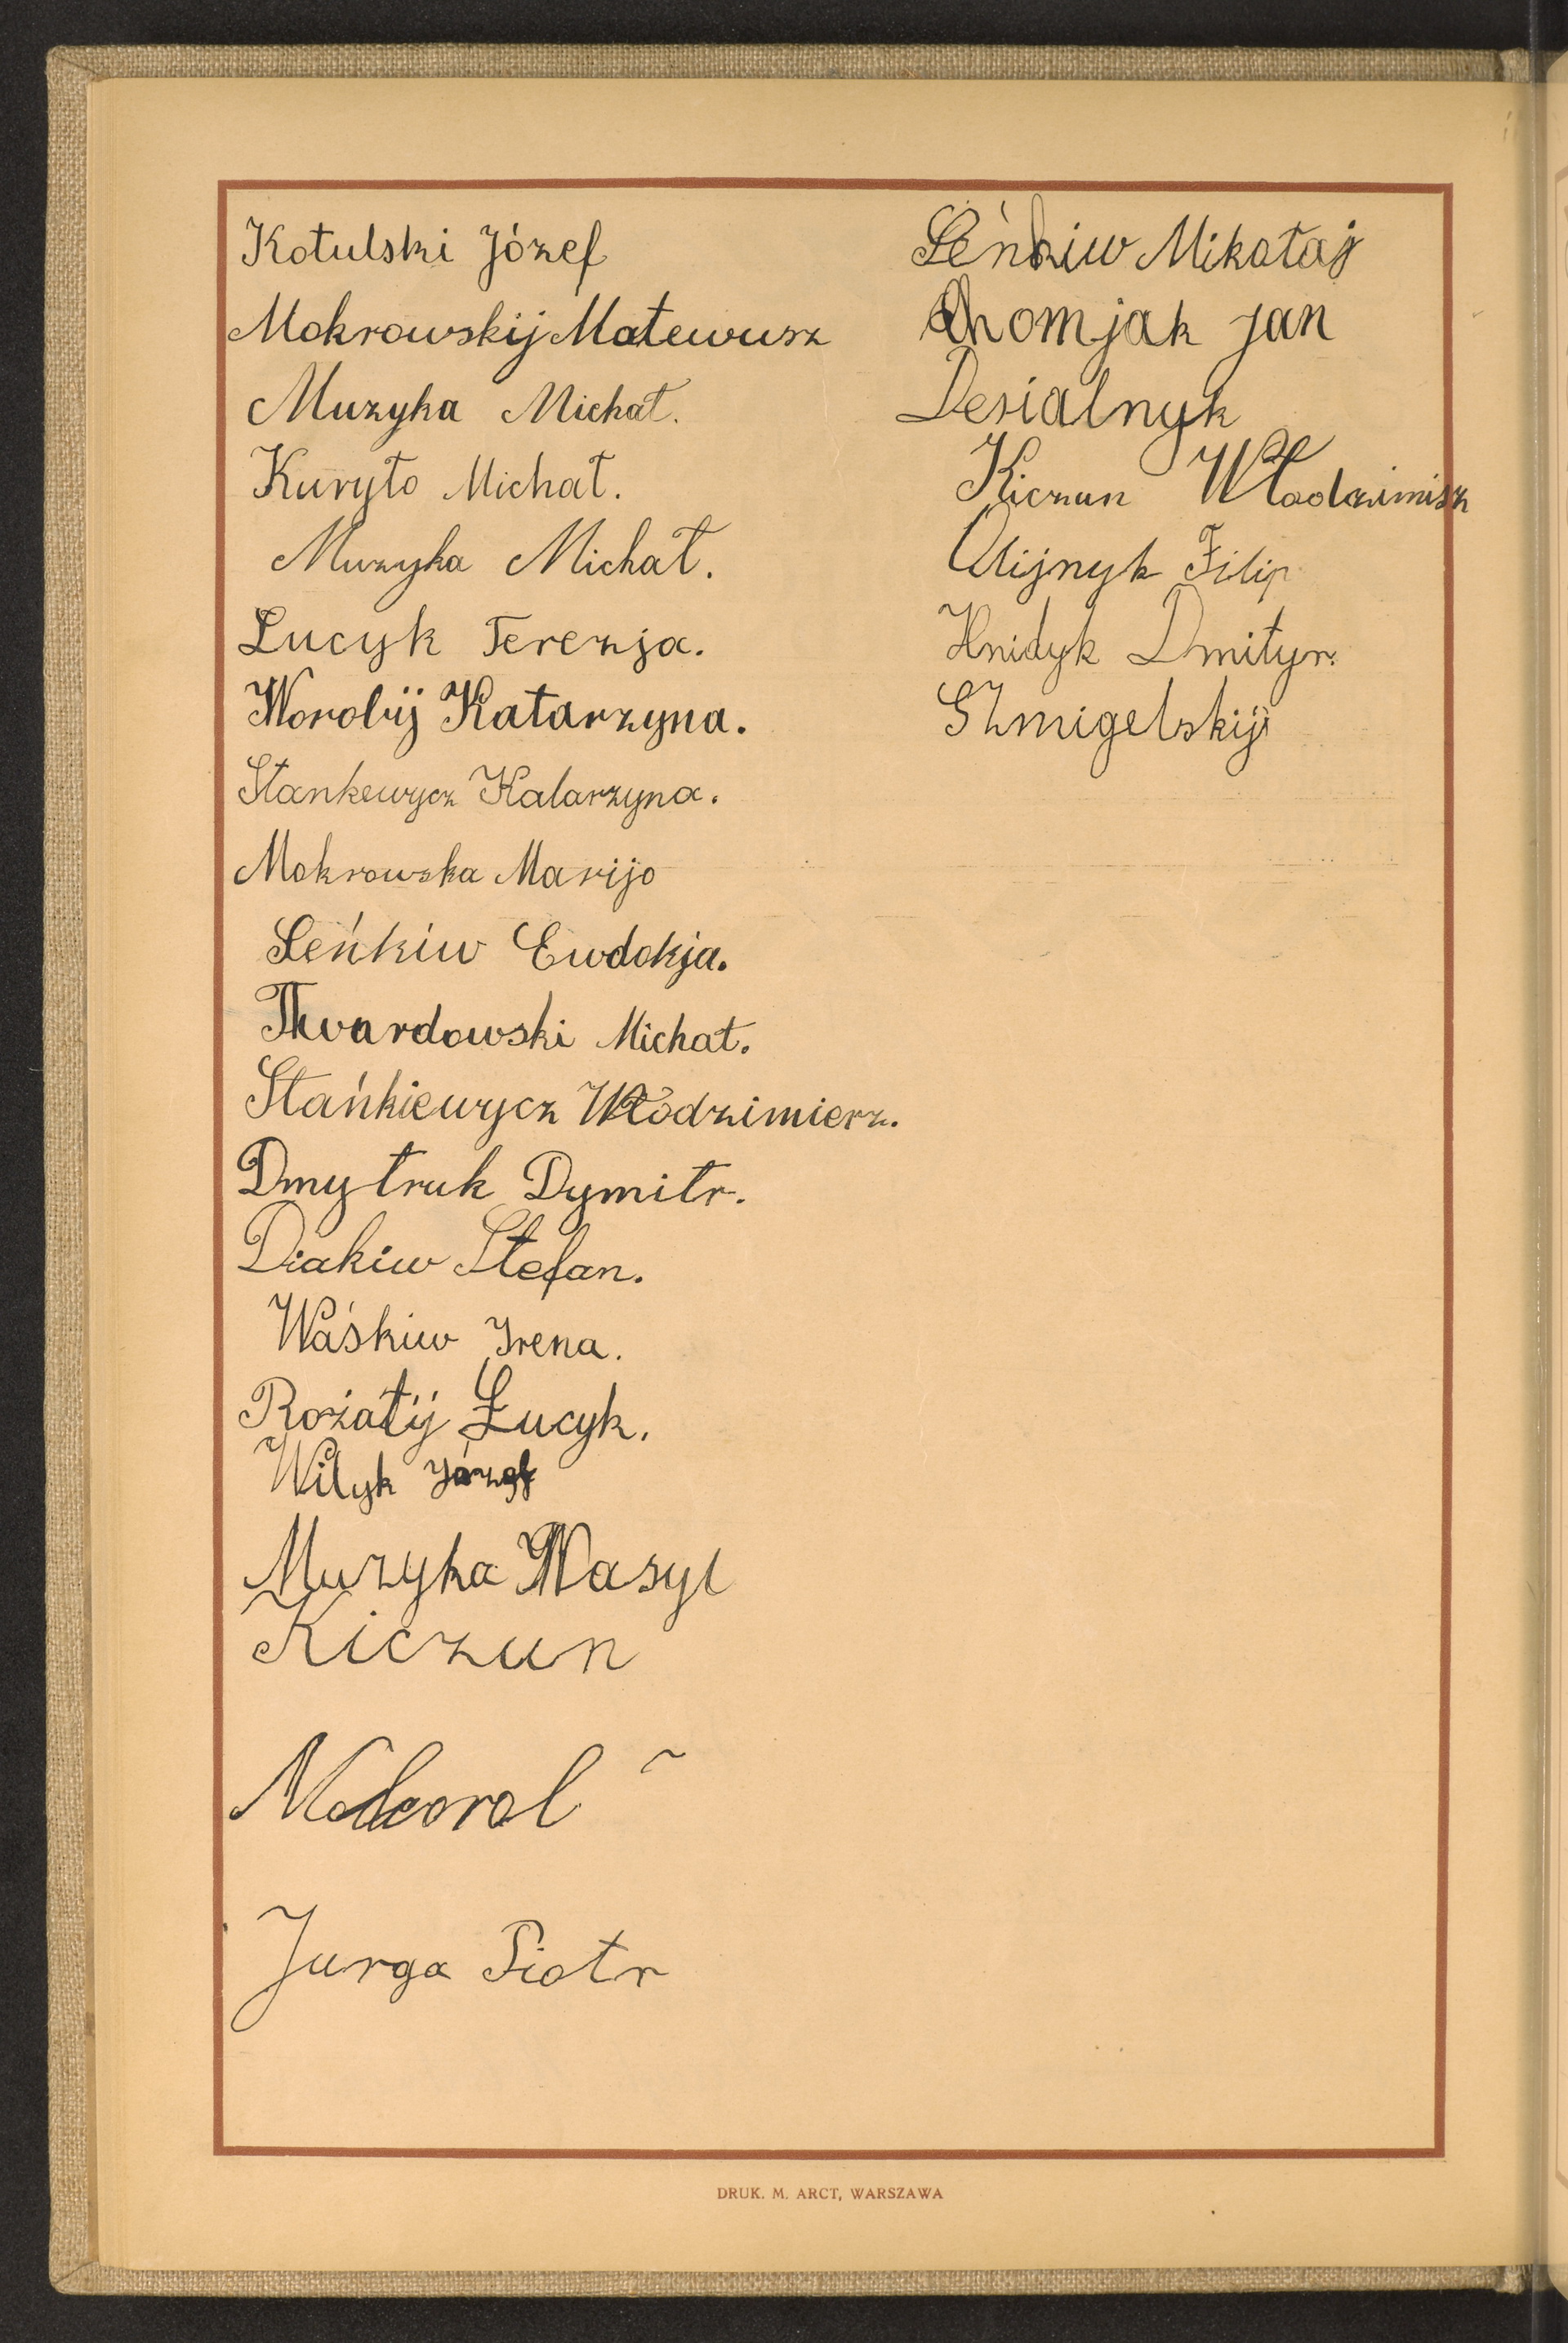 Kotulski Józef
Mokrowskij Matewusz
Muzyka Michał.
Kuryło Michał.
Muzyka Michał.
Łucyk Terezja.
Worobij Katarzyna.
Stankewycz Katarzyna.
Mokrowska Marijo
Leńkiw Ewdokja.
Twardowski Michał.
Stańkiewycz Włodzimierz.
Dmytruk Dymitr.
Diakiw Stefan.
Waśkiw Irena.
Łucyk.
Wilyk Józef
Muzyka Wasyl
Kiczun
Jurga Piotr
Leńkiw Mikołaj
Chomjak Jan
Desialnyk
Kiczun Włodzimisz
Olijnyk Filip
Hnidyk Dmityr.
Szmigelskij
DRUK. M. ARCT, WARSZAWA